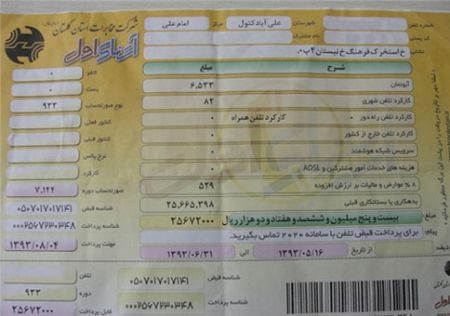 شرکت مخابرات استان گلستان
آوای اول
شماره تلفن
شهرستان علی آباد کتول
مرکز امام علی
کد پستی
نام مشترک
نشانی خ استخر ک فرهنگ خ نیستان ۴ پ۰
شرح مبلغ
آبونمان ۶,۵۳۳
کارکرد تلفن شهری ۸۲
کارکرد تلفن راه دور ۰ کارکرد تلفن همراه ۰
کارکرد تلفن خارج از کشور ۰
سرویس شبکه هوشمند ۰
هزینه های خدمات امور مشترکین و ADSL ۰
۸% عوارض و مالیات بر ارزش افزوده ۵۲۹
بدهکاری یا بستانکاری قبلی ۲۵,۶۶۵,۳۹۸
مبلغ بیست و پنج میلیون و ششصد و هفتاد و دو هزار ریال ۲۵۶۷۲۰۰۰
پیام: برای پرداخت قبض تلفن با سامانه ۲۰۲۰ تماس بگیرید.
از تاریخ ۱۳۹۳/۰۵/۱۶ الی ۱۳۹۳/۰۶/۳۱
کافو ۰
پست ۰
نوع صورتحساب ۹۳۳
کنتور فعلی
کنتور قبلی
نرخ پالس
کارکرد
صورتحساب دوره ۷,۱۴۴
شناسه قبض ۰۵۰۷۰۱۷۰۱۷۱۴۱
شناسه پرداخت ۰۰۰۲۵۶۷۲۳۰۳۴۸
مهلت پرداخت ۱۳۹۳/۰۸/۰۴
تلفن
دوره ۹۳۳
قابل پرداخت ۲۵۶۷۲۰۰۰
شناسه قبض ۰۵۰۷۰۱۷۰۱۷۱۴۱
شناسه پرداخت ۰۰۰۲۵۶۷۲۳۰۳۴۸